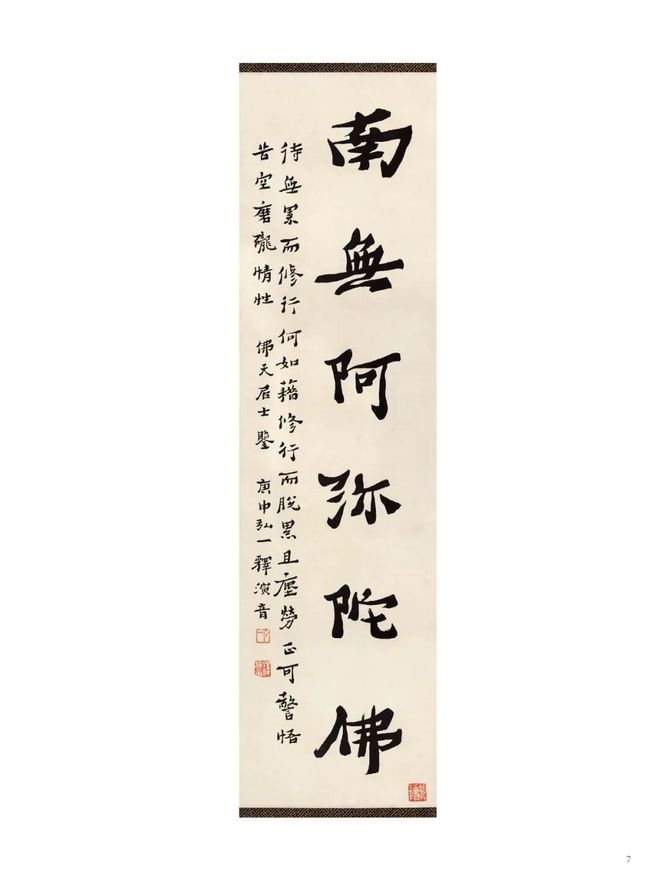 南無阿弥陀佛
待無累而修行何如藉修行而脫累且塵勞正可警悟
苦空磨礲情性 佛天居士鑒 庚申弘一釋演音
7